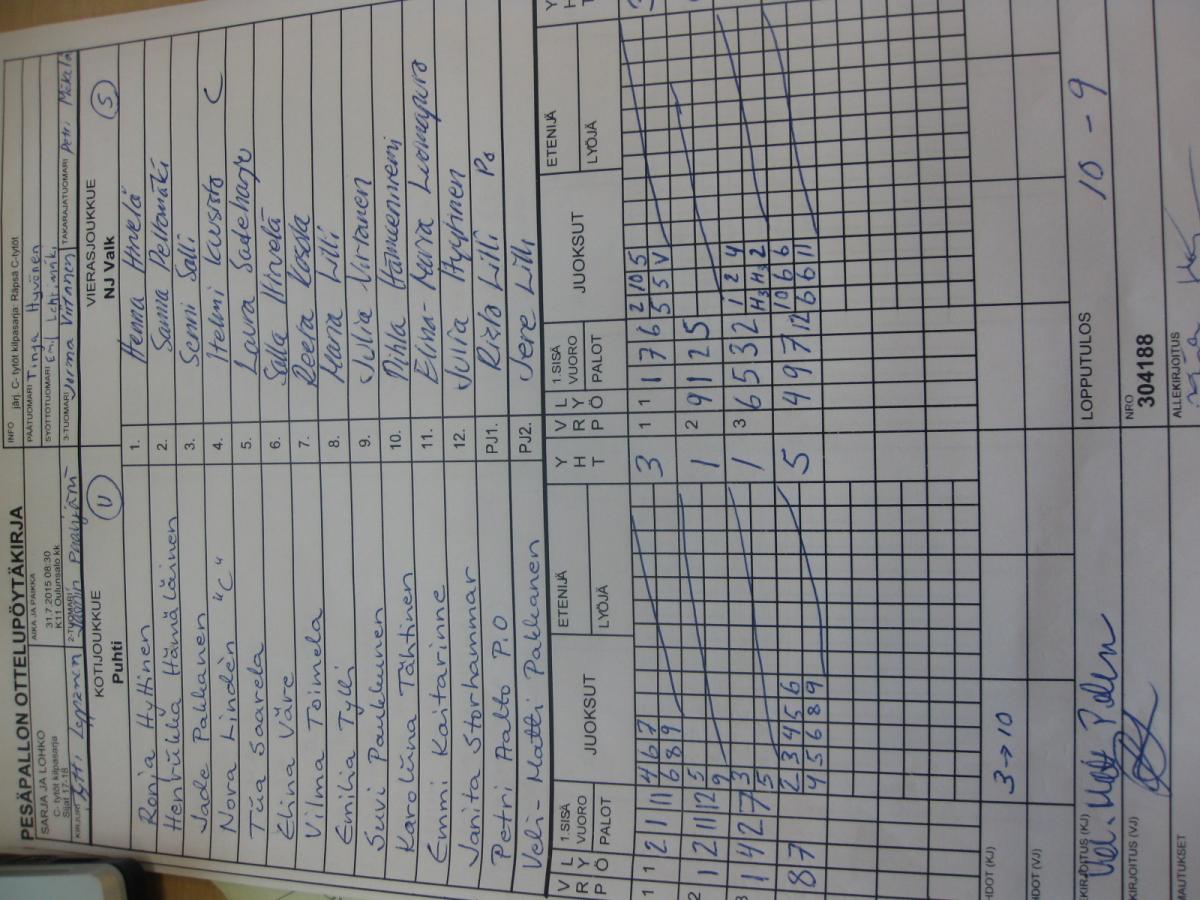 PESÄPALLON OTTELUPÖYTÄKIRJA
SARJA JA LOHKO
C- tytöt kilpasarja
Sijat 17-18
AIKA JA PAIKKA
31.7.2015 08:30
K11 Oulunsalo kk
INFO
järj. C- tytöt kilpasarja: Räpsä C-tytöt
PÄÄTUOMARI Tinja Hyvönen
SYÖTTÖTUOMARI
3-TUOMARI Jorma Virtanen
TAKARAJATUOMARI Petri Mäkelä
KIRJURI
2-TUOMARI
KOTIJOUKKUE
Puhti
U
Ronja Hyttinen
Henriikka Hämäläinen
Jade Pakkanen
Nova Lindén "C"
Tiia Saarela
Elina Väre
Vilma Toimela
Emilia Tylli
Suvi Paukkunen
Karoliina Tähtinen
Emmi Kaitarinne
Janita Storhammar
Petri Aalto P.O
Veli-Matti Pakkanen
VIERASJOUKKUE
NJ Valk
S
1. Henna Hirvelä
2. Sanna Peltomäki
3. Senni Salli
4. Helmi Kuusisto C
5. Laura Sadeharju
6. Salla Hirvelä
7. Reeta Koski
8. Maria Lilli
9. Julia Virtanen
10. Pihla Hämeenniemi
11. Elina-Noora Luomapuro
12. Julia Hyytinen
PJ1. Risto Lilli Po
PJ2. Jere Lilli
V R P
L Y Ö
1.SISÄ VUORO
PALOT
JUOKSUT
ETENIJÄ
LYÖJÄ
Y H T
V R P
L Y Ö
1.SISÄ VUORO
PALOT
JUOKSUT
ETENIJÄ
LYÖJÄ
Y H T
1 1 2 1 11
4 6 7
6 8 9
3
1 1 1 7 6
2 10 5
5 5 V
2 1 2 11 12
5
9
1
2 9 12 5
3 1 4 2 7
3
5
1
3 6 5 3 2
1 2 4
H3 H3 2
8 7
2 3 4 5 6
4 5 6 8 9
5
4 9 7 12
10 6 6
6 6 11
3→10
HDOT (KJ)
HDOT (VJ)
EKIRJOITUS (KJ)
KIRJOITUS (VJ)
MAUTUKSET
LOPPUTULOS
10 - 9
NRO
304188
ALLEKIRJOITUS